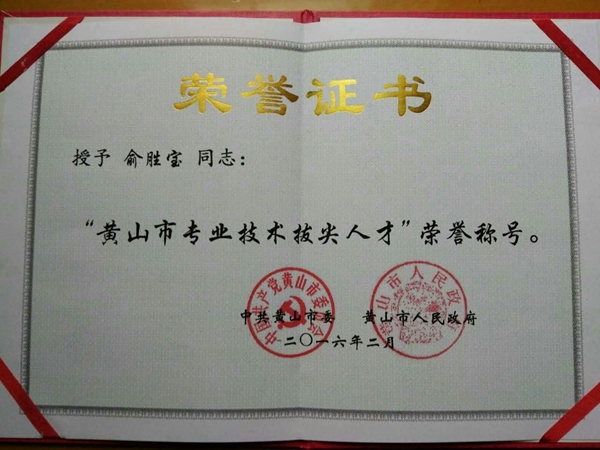 荣誉证书
授予 俞胜宝 同志：
“黄山市专业技术拔尖人才”荣誉称号。
中国共产党黄山市委员会
黄山市人民政府
中共黄山市委 黄山市人民政府
二〇一六年二月